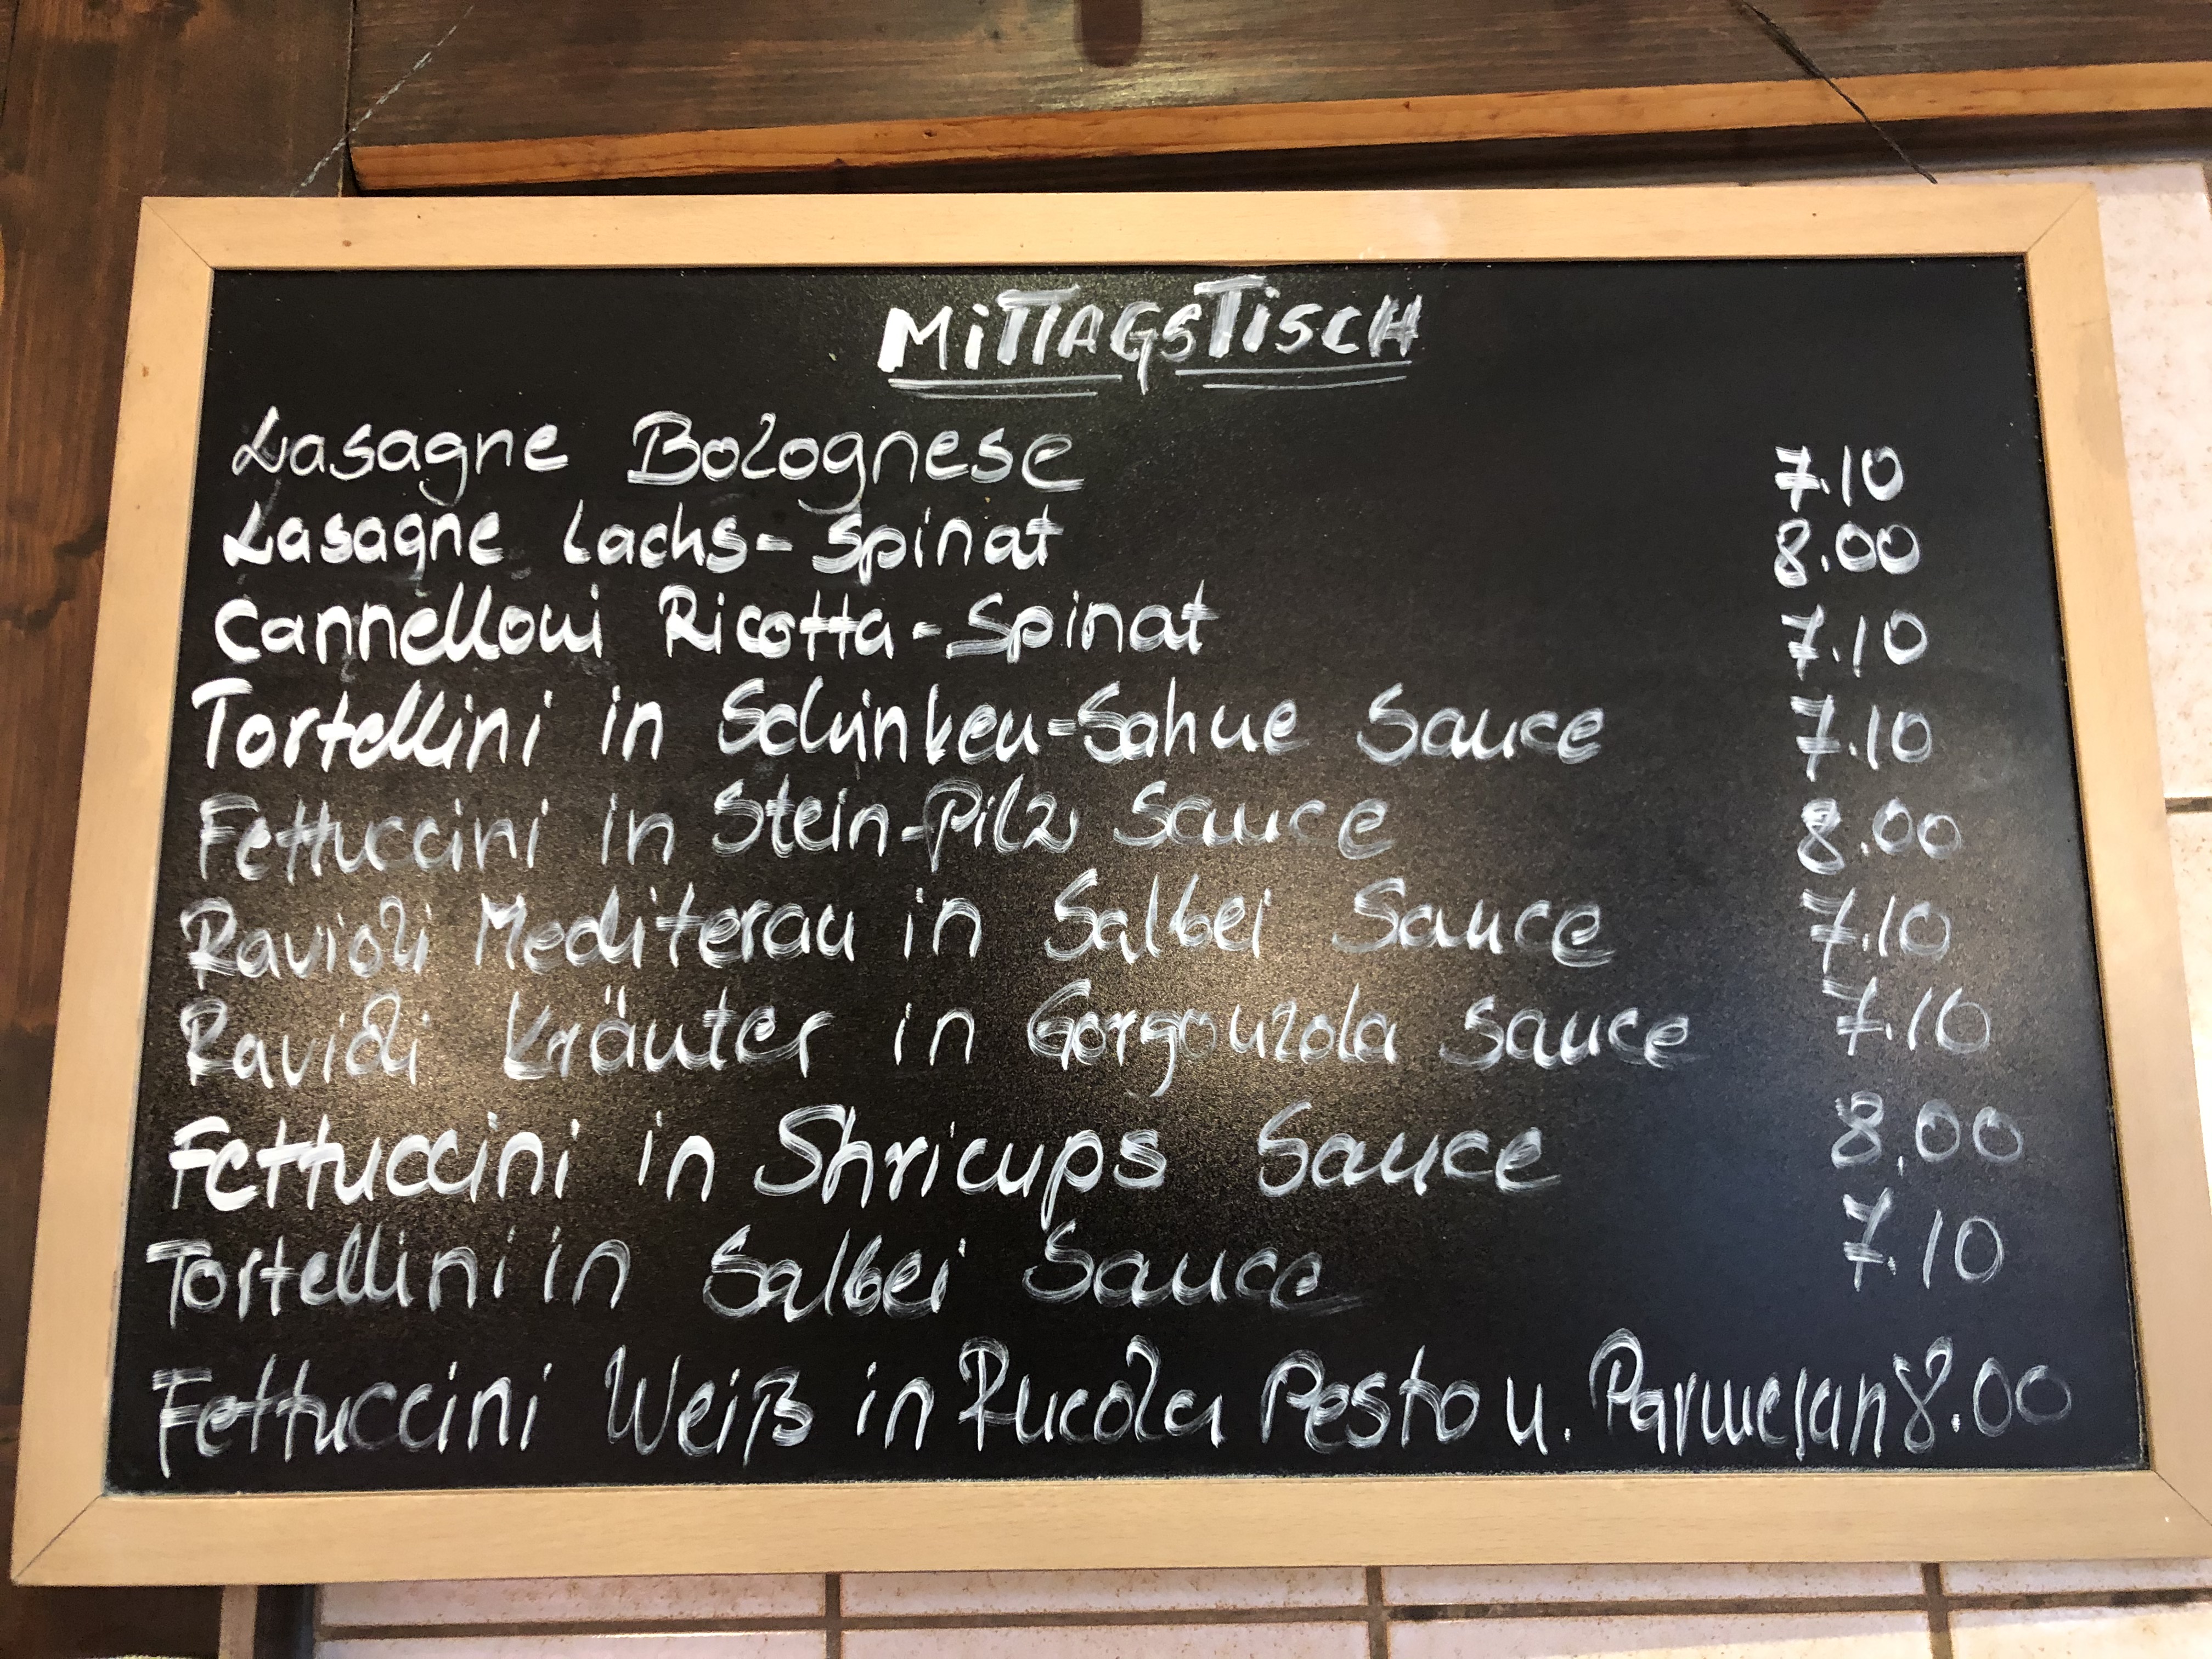 MiTTAGSTiSCH
Lasagne Bolognese 7.10
Lasagne Lachs-Spinat 8.00
Cannelloni Ricotta-Spinat 7.10
Tortellini in Schinken-Sahne Sauce 7.10
Fettuccini in Stein-Pilz Sauce 8.00
Ravioli Mediteran in Salbei Sauce 7.10
Ravioli Kräuter in Gorgonzola Sauce 7.10
Fettuccini in Shricups Sauce 8.00
Tortellini in Salbei Sauce 7.10
Fettuccini Weiß in Rucola Pesto u. Parmesan 8.00